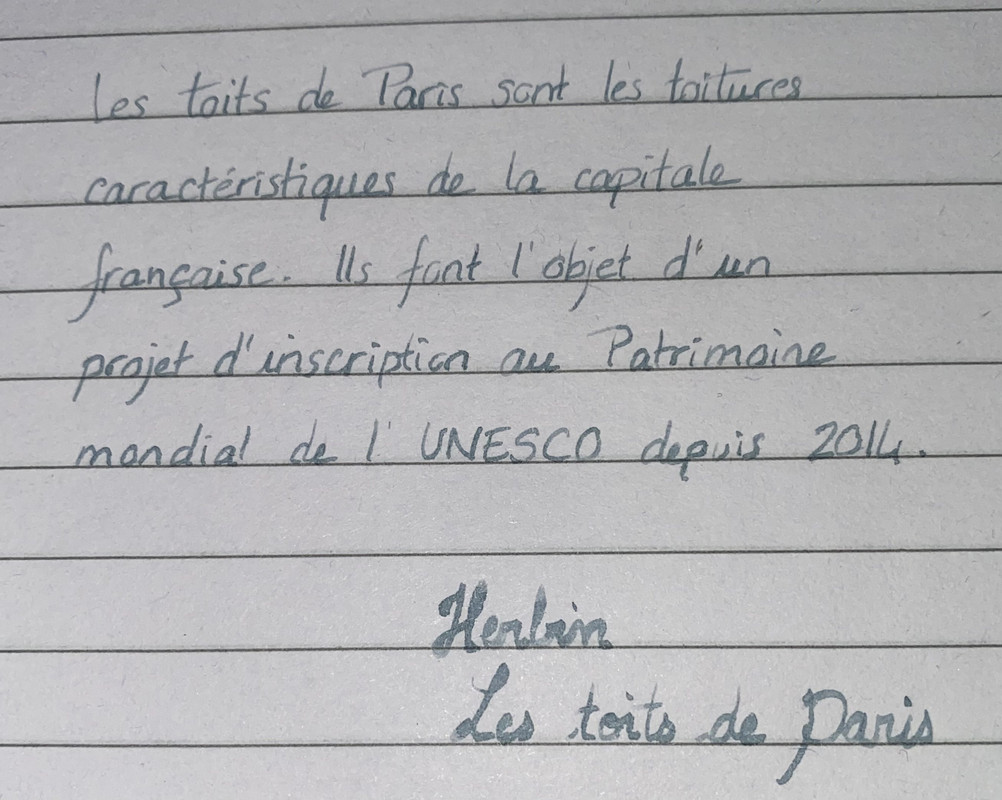 Les toits de Paris sont les toitures
caractéristiques de la capitale
française. Ils font l'objet d'un
projet d'inscription au Patrimoine
mondial de l'UNESCO depuis 2014.
Herbin
Les toits de Paris